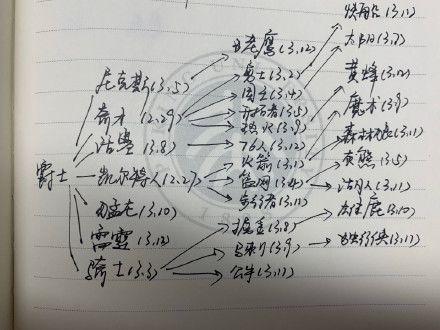 爵士
尼克斯(3.5)
奇才(2.29)
活塞(3.8)
凯尔特人(2.27)
猛龙(3.10)
雷霆(3.12)
骑士(3.3)
老鹰(3.12)
勇士(3.2)
国王(3.4)
开拓者(3.5)
热火(3.9)
76人(3.12)
火箭(3.1)
篮网(3.4)
步行者(3.11)
掘金(3.8)
马刺(3.9)
公牛(3.11)
快船(3.11)
太阳(3.7)
黄蜂(3.12)
魔术(3.9)
森林狼(3.11)
灰熊(3.5)
湖人(3.11)
雄鹿(3.10)
独行侠(3.11)